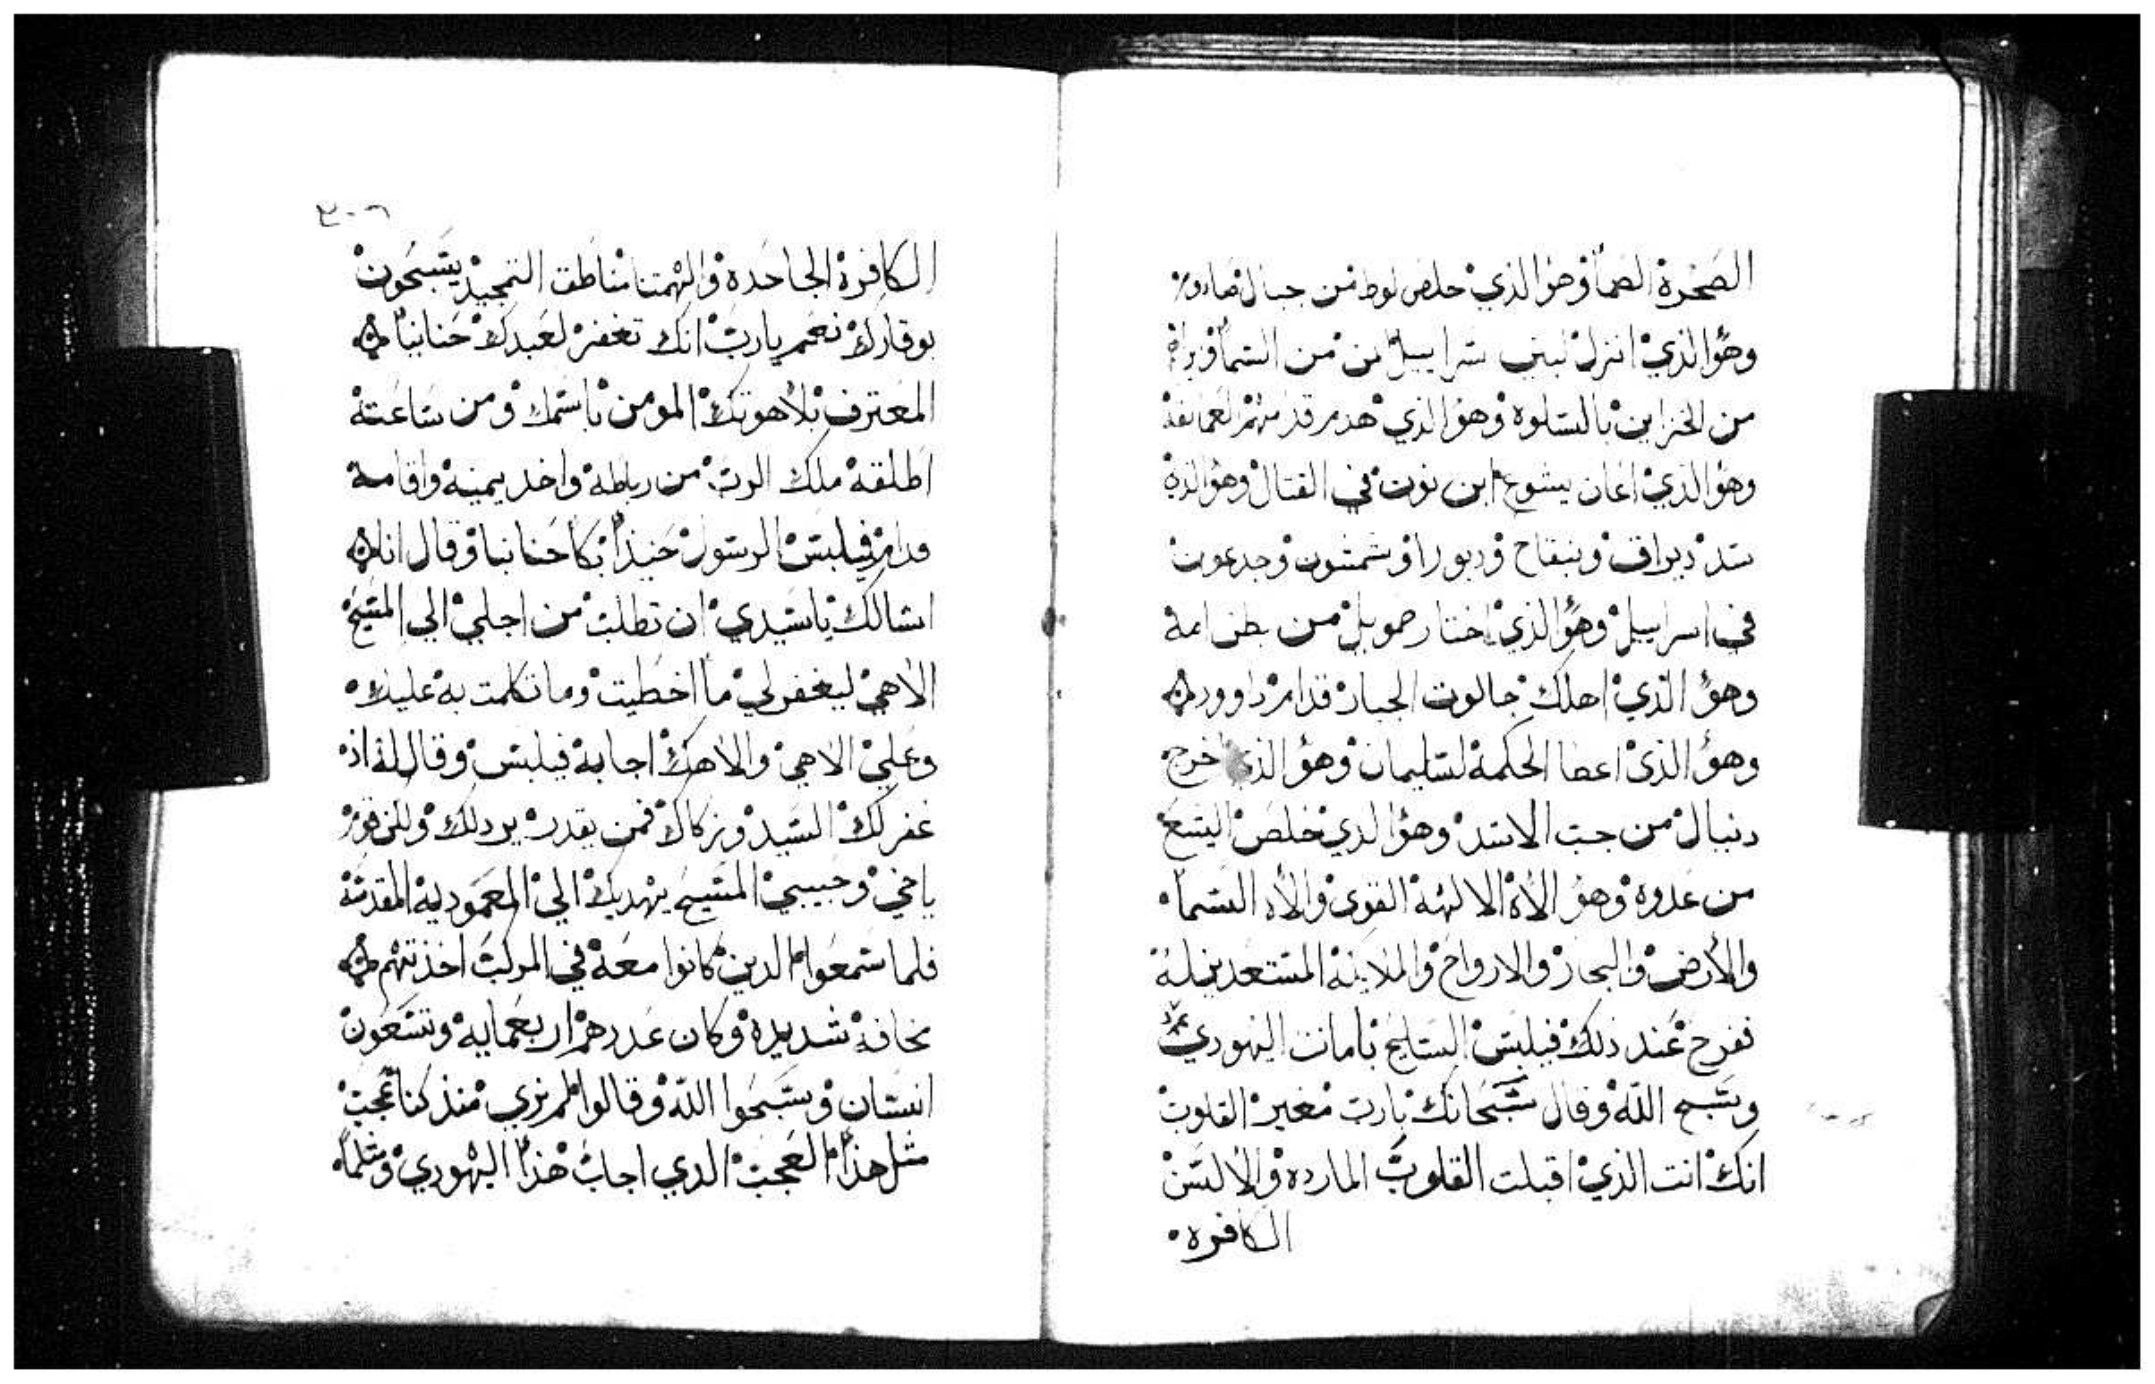 الصخرة الصما وهو الذي خلص لوط من جبال صادوم
وهو الذي انزل لبني سراييل من من السما وبراه
من الخزاين بالسلوه وهو الذي هدم قدامهم العمالقه
وهو الذي اعان يشوع ابن نون في القتال وهو الذي
سند ديراق وبنقاح ودبورا وشمشون وجدعون
في اسراييل وهو الذي اختار صمويل من بطن امه
وهو الذي اهلك جالوت الجبار قدام داوود
وهو الذي اعطا الحكمة لسليمان وهو الذي اخرج
دنيال من جب الاسد وهو الذي خلص اليسع
من عدوه وهو الاه الالهه القوي والاه السما
والارض والبحار والارواح والملايكه المستعدين له
ففرح عند ذلك فيلبس السليح بامانت اليهودي
وسبح الله وقال سبحانك يارب مغير القلوب
انك انت الذي اقبلت القلوب المارده والالسن
الكافره
٢٠٣
الكافرة الجاحده والهمتنا مناطق التمجيد يسبحون
بوقارك نعم يارب انك تغفر لعبدك حنانيا
المعترف بلاهوتك المومن باسمك ومن ساعته
اطلقه ملك الرب من رباطه واخد بيمينه واقامه
قدام فيلبس الرسول حنيذ بكا حنانيا وقال انا
اسالك ياسيدي ان تطلب من اجلي الي المسيح
الاهي ليغفر لي ما اخطيت وما تكلمت به عليك
وعلي الاهي والاهك اجابه فيلبس وقال له اذ
غفر لك السيد وزكاك فمن يقدر يردلك ولكن قوم
ياخي وحبيبي المسيح يهديك الي المعموديه المقدسه
فلما سمعوا الدين كانوا معه في المركب اخذتهم
مخافة شديده وكان عددهم اربعمايه وتسعون
انسان وسبحوا الله وقالوا لم نري منذ كنا عجب
مثل هذا العجب الدي اجاب هذا اليهودي وسلما